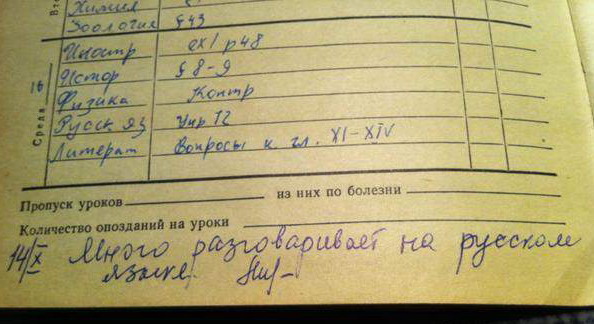 Вт
Химия
Зоология § 43
Среда 16
Иностр ex 1 p 48
Истор § 8-9
Физика Контр
Русск яз Упр 12
Литерат Вопросы к гл. XI-XIV
Пропуск уроков из них по болезни
Количество опозданий на уроки
14/X Много разговаривает на русском
языке.